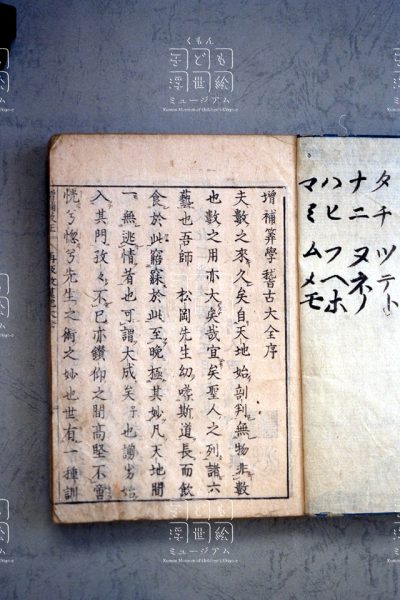 タチツテト
ナニヌネノ
ハヒフヘホ
マミムメモ
增補筭學稽古大全序
夫數之來久矣自天地始剖判無物非數
也數之用亦大矣哉宜矣聖人之列諸六
藝也吾師 松岡先生幼嗜斯道長而飲
食於此寤寐於此至晚極其妙凡天地間
一無逃情者也可謂大成矣予也謭劣始
入其門孜々不已亦鑽仰之間高堅不啻
恍兮惚兮先生之術之妙也世有一種訓
くもん
子ども
浮世絵
ミュージアム
Kumon Museum of Children's Ukiyo-e